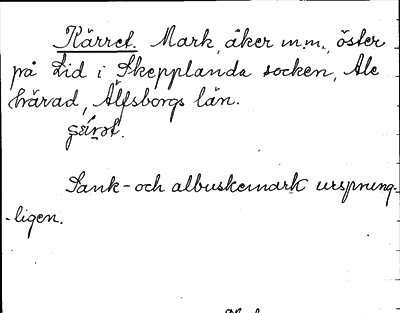 Kärret. Mark, åker m.m., öster
på Lid i Skepplanda socken, Ale
härad, Älfsborgs län.
Sank- och albuskemark ursprung-
-ligen.